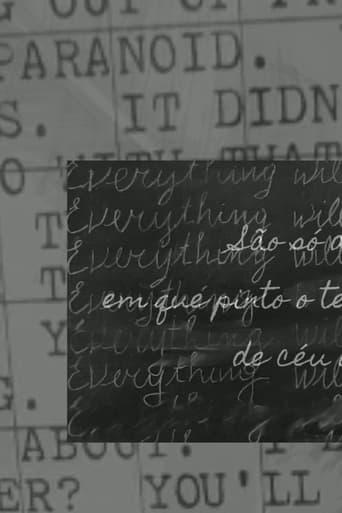 G OUT OF
PARANOID.
S. IT DIDN
O WITH THAT
Everything will
Everything will
Everything will
São só a
Everything will
em que pinto o te
Everything will
de céu
Everything will
G.
ABOUT.
ER? YOU'LL